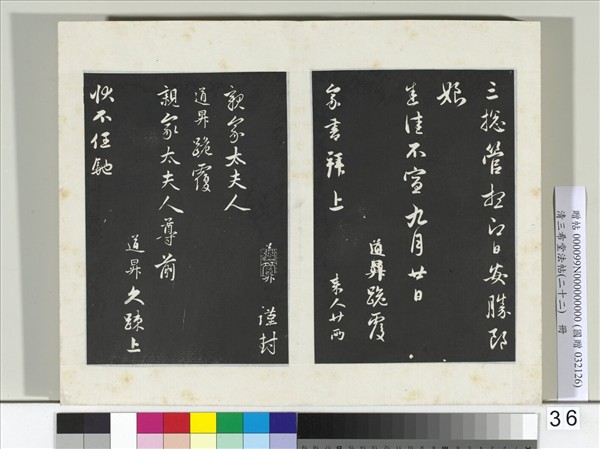 三總管想即日安勝郎
娘
均佳不宣九月廿日
道昇跪覆
家書拜上
來人廿兩
親家太夫人
道昇跪覆
謹封
親家太夫人尊前
道昇久疎上
狀不任馳
贈帖 000099N000000000 (國贈 032126)
清三希堂法帖(二十二) 冊
36